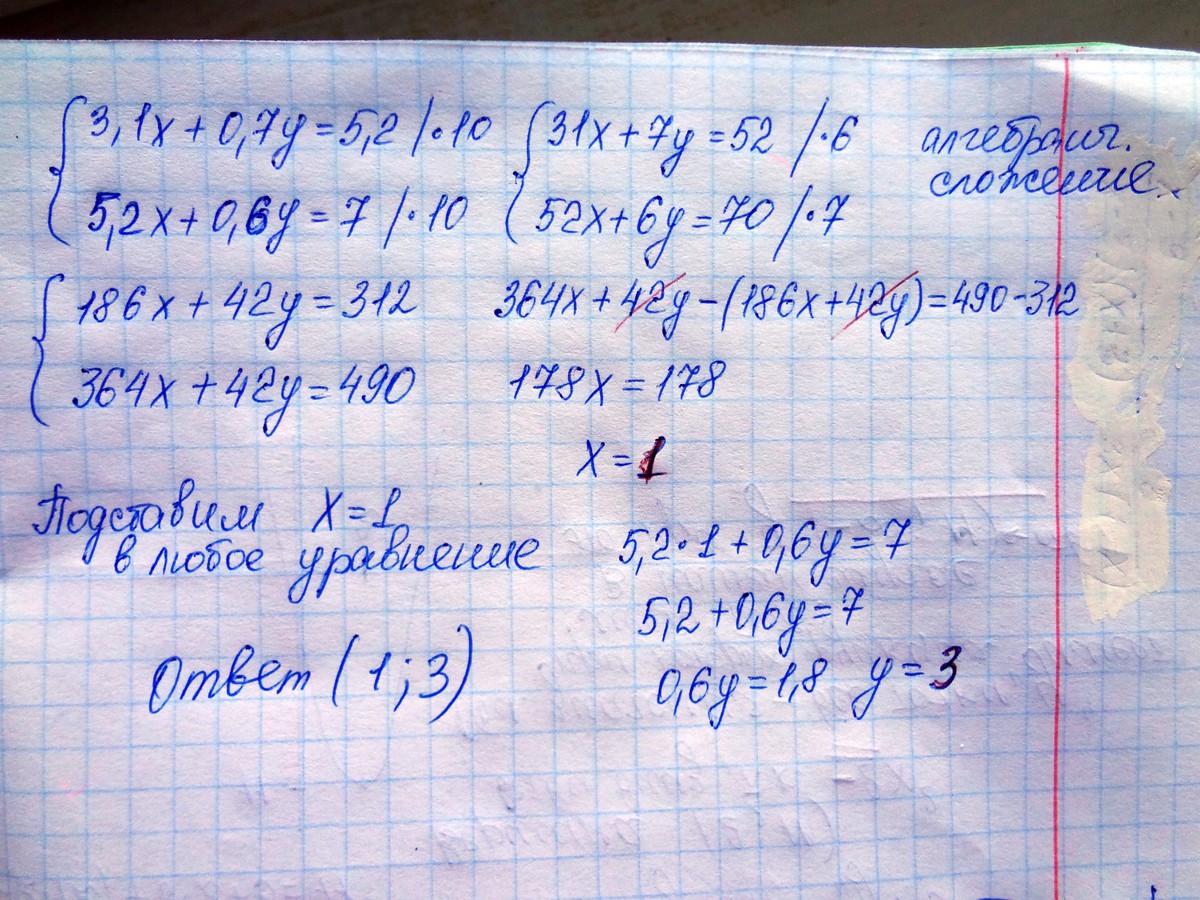 3,1x + 0,7y = 5,2 / · 10
5,2x + 0,6y = 7 / · 10
31x + 7y = 52 / · 6
52x + 6y = 70 / · 7
алгебраич.
сложение
186x + 42y = 312
364x + 42y = 490
364x + 42y - (186x + 42y) = 490 - 312
178x = 178
x = 1
Подставим x = 1
в любое уравнение
5,2 · 1 + 0,6y = 7
5,2 + 0,6y = 7
0,6y = 1,8 y = 3
Ответ (1; 3)